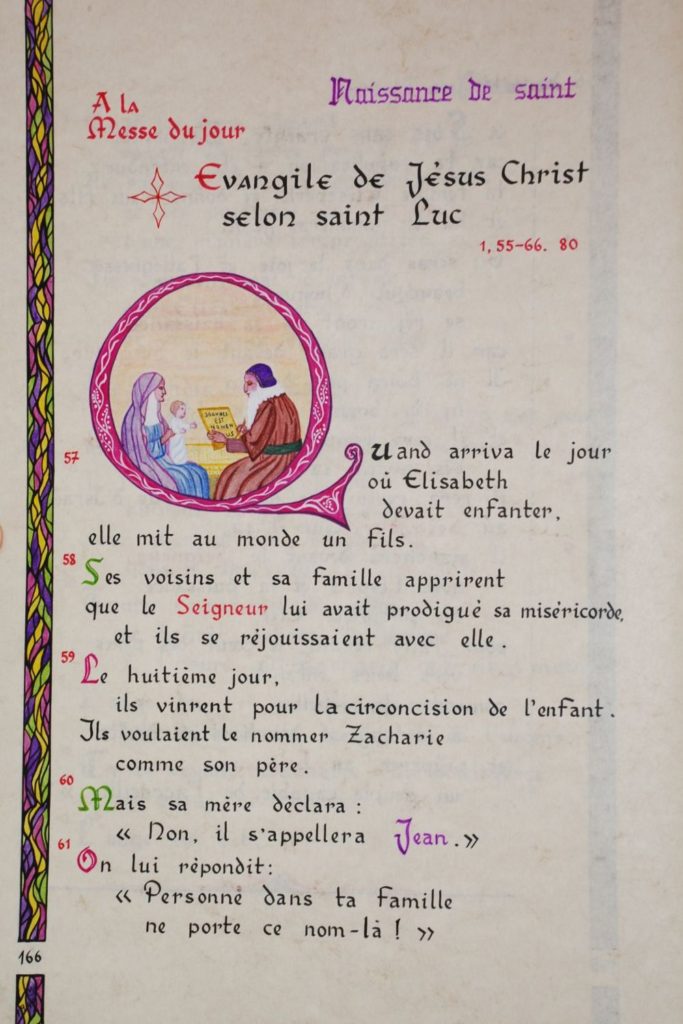 Naissance de saint
A la
Messe du jour
Evangile de Jésus Christ
selon saint Luc
1, 55-66. 80
JOANNES
EST
NOMEN
57
Quand arriva le jour
où Elisabeth
devait enfanter,
elle mit au monde un fils.
58
Ses voisins et sa famille apprirent
que le Seigneur lui avait prodigué sa miséricorde,
et ils se réjouissaient avec elle.
59
Le huitième jour,
ils vinrent pour la circoncision de l'enfant.
Ils voulaient le nommer Zacharie
comme son père.
60
Mais sa mère déclara :
« Non, il s'appellera Jean. »
61
On lui répondit:
« Personne dans ta famille
ne porte ce nom-là ! »
166